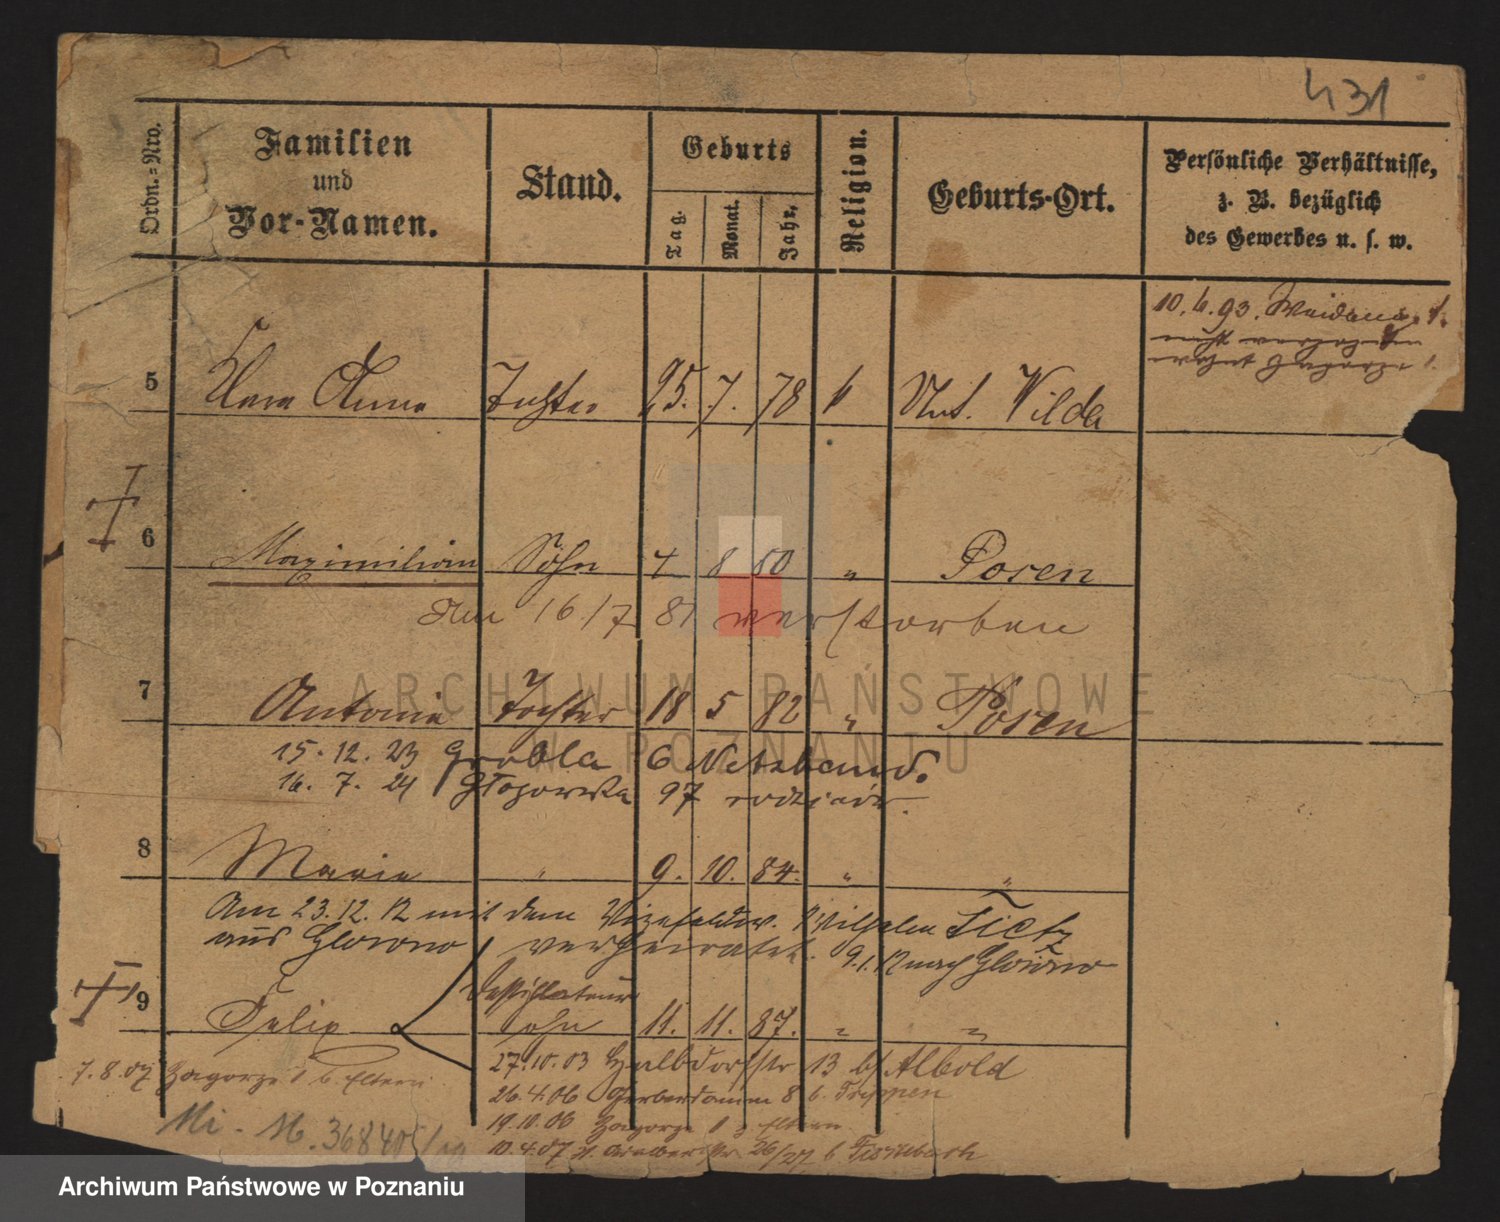 431
Ordn.-Nro.
Familien
und
Vor-Namen.
Stand.
Geburts
Tag.
Monat.
Jahr,
Religion.
Geburts-Ort.
Persönliche Verhältnisse,
z. B. bezüglich
des Gewerbes u. s. w.
10. 6. 93.
5 Anna Tochter 25. 7. 78 Unt. Wilda
6 Maximilian Sohn 8 80 " Posen
Am 16/7 81 verstorben
7 Antonie Tochter 18 5 82 " Posen
15. 12. 23 Grobla 6
16. 7. 24 Głogowska 97 rodziców.
8 Marie " 9. 10. 84. " "
Am 23. 12. 12 mit dem Vizefeldw. Wilhelm Tietz
aus Glowno verheiratet. 9.1. nach Glowno
Destillateur
9 Felix Sohn 11. 11. 87. " "
7. 8. 07 Zagorze b. Eltern
27. 10. 03 Halbdorfstr 13 b/ Albold
26. 4. 06 Gerberdamm 8 b. Treppen
19. 10. 06 Zagorze Eltern
10. 4. 07 26/27 b
Mi. M. 368405/
ARCHIWUM PAŃSTWOWE
W POZNANIU
Archiwum Państwowe w Poznaniu